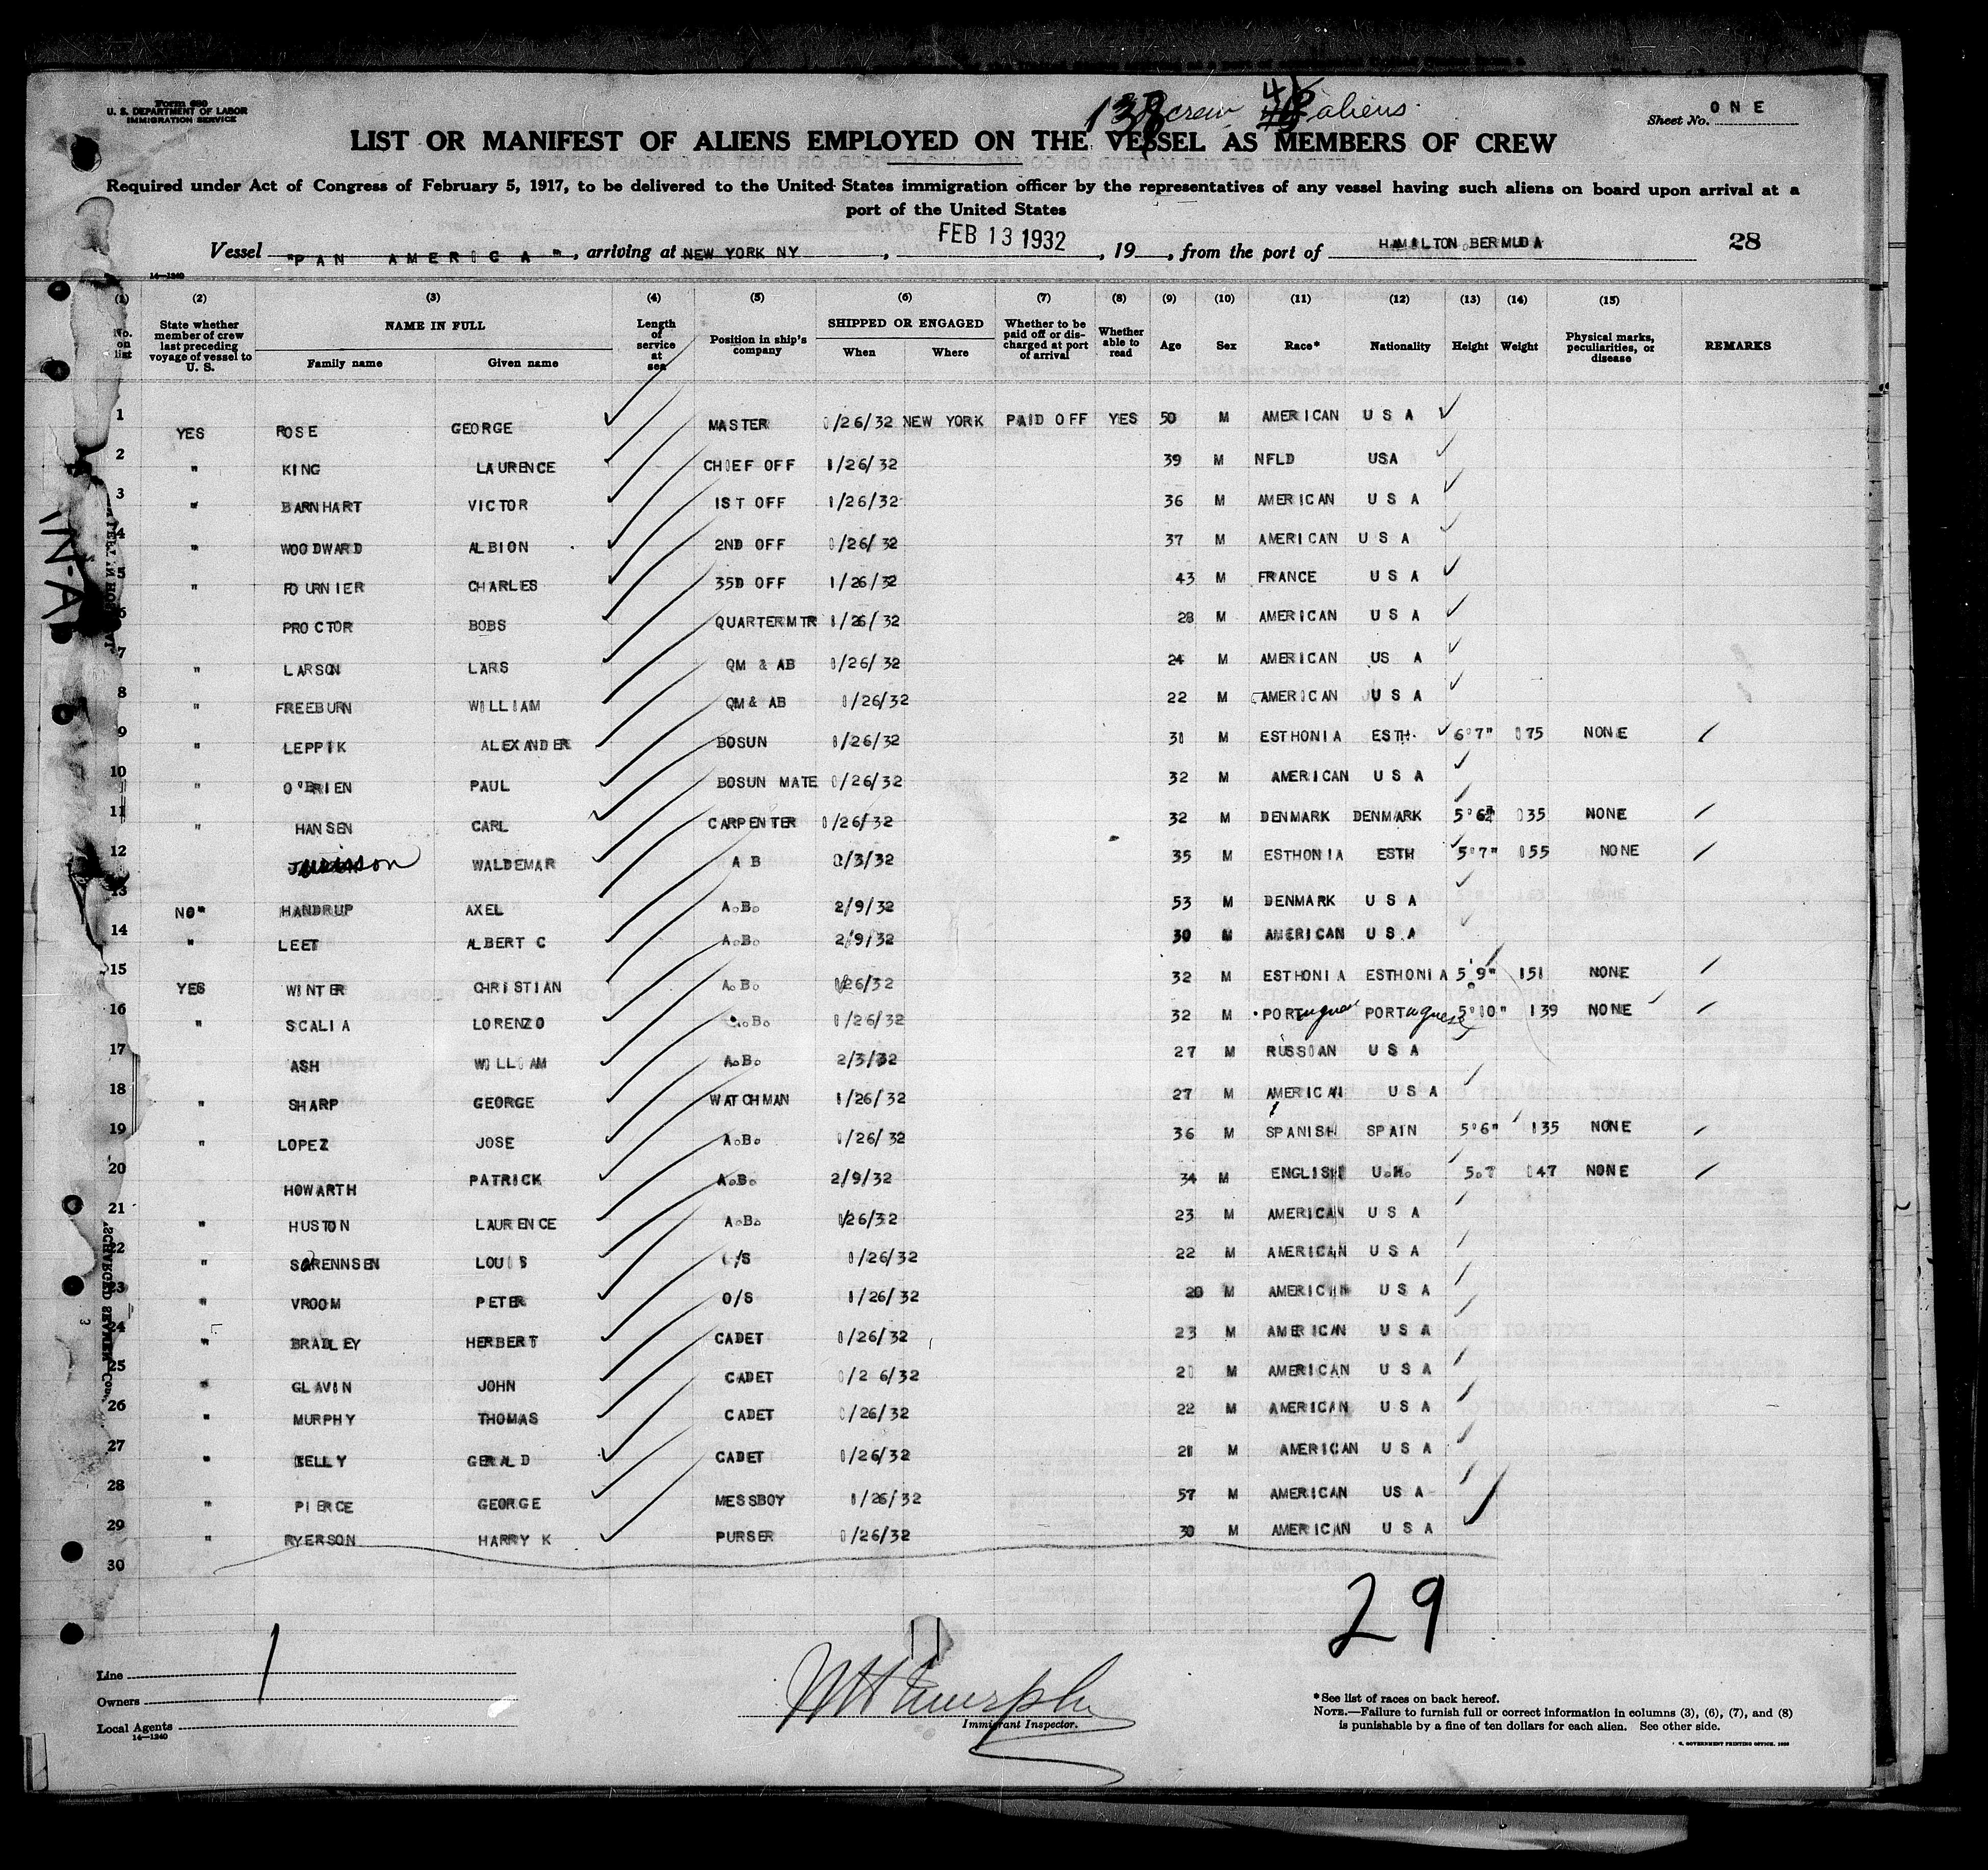 Form 680
U. S. DEPARTMENT OF LABOR
IMMIGRATION SERVICE
crew aliens.
Sheet No. ONE
LIST OR MANIFEST OF ALIENS EMPLOYED ON THE VESSEL AS MEMBERS OF CREW
Required under Act of Congress of February 5, 1917, to be delivered to the United States immigration officer by the representatives of any vessel having such aliens on board upon arrival at a
port of the United States
Vessel "PAN AMERICA", arriving at NEW YORK NY, FEB 13 1932, 19, from the port of HAMILTON BERMUDA 28
14—1240
(1) (2) (3) (4) (5) (6) (7) (8) (9) (10) (11) (12) (13) (14) (15)
No. on list
State whether member of crew last preceding voyage of vessel to U. S.
NAME IN FULL
Family name Given name
Length of service at sea
Position in ship's company
SHIPPED OR ENGAGED
When Where
Whether to be paid off or discharged at port of arrival
Whether able to read
Age Sex Race* Nationality Height Weight
Physical marks, peculiarities, or disease
REMARKS
1 YES ROSE GEORGE MASTER 1/26/32 NEW YORK PAID OFF YES 50 M AMERICAN U S A
2 " KING LAURENCE CHIEF OFF 1/26/32 39 M NFLD USA
3 " BARNHART VICTOR 1ST OFF 1/26/32 36 M AMERICAN U S A
4 " WOODWARD ALBION 2ND OFF 1/26/32 37 M AMERICAN U S A
5 " FOURNIER CHARLES 35D OFF 1/26/32 43 M FRANCE U S A
6 PROCTOR BOBS QUARTERMTR 1/26/32 28 M AMERICAN U S A
7 " LARSON LARS QM & AB 1/26/32 24 M AMERICAN US A
8 " FREEBURN WILLIAM QM & AB 1/26/32 22 M AMERICAN U S A
9 " LEPPIK ALEXANDER BOSUN 1/26/32 31 M ESTHONIA ESTH. 6'7" 175 NONE
10 " O'BRIEN PAUL BOSUN MATE 1/26/32 32 M AMERICAN U S A
11 " HANSEN CARL CARPENTER 1/26/32 32 M DENMARK DENMARK 5'6" 135 NONE
12 WALDEMAR A B 2/3/32 35 M ESTHONIA ESTH 5'7" 155 NONE
13 NO" HANDRUP AXEL A.B. 2/9/32 53 M DENMARK U S A
14 " LEET ALBERT C A.B. 2/9/32 30 M AMERICAN U S A
15 YES WINTER CHRISTIAN A.B. 1/26/32 32 M ESTHONIA ESTHONIA 5'9" 151 NONE
16 " SCALIA LORENZO A.B. 1/26/32 32 M PORTuguese PORTuguese 5'10" 139 NONE
17 ASH WILLIAM A.B. 2/3/32 27 M RUSSIAN U S A
18 " SHARP GEORGE WATCHMAN 1/26/32 27 M AMERICAN U S A
19 " LOPEZ JOSE A.B. 1/26/32 36 M SPANISH SPAIN 5'6" 135 NONE
20 HOWARTH PATRICK A.B. 2/9/32 34 M ENGLISH 5.7 147 NONE
21 " HUSTON LAURENCE A.B. 1/26/32 23 M AMERICAN U S A
22 " SORENNSEN LOUIS O/S 1/26/32 22 M AMERICAN U S A
23 " VROOM PETER O/S 1/26/32 20 M AMERICAN U S A
24 " BRADLEY HERBERT CADET 1/26/32 23 M AMERICAN U S A
25 " GLAVIN JOHN CADET 1/26/32 M AMERICAN U S A
26 " MURPHY THOMAS CADET 1/26/32 22 M AMERICAN U S A
27 " KELLY GERALD CADET 1/26/32 21 M AMERICAN U S A
28 " PIERCE GEORGE MESSBOY 1/26/32 57 M AMERICAN US A
29 " RYERSON HARRY K PURSER 1/26/32 30 M AMERICAN U S A
30
29
Line
Owners
Local Agents
14—1240
Immigrant Inspector.
*See list of races on back hereof.
NOTE.—Failure to furnish full or correct information in columns (3), (6), (7), and (8)
is punishable by a fine of ten dollars for each alien. See other side.